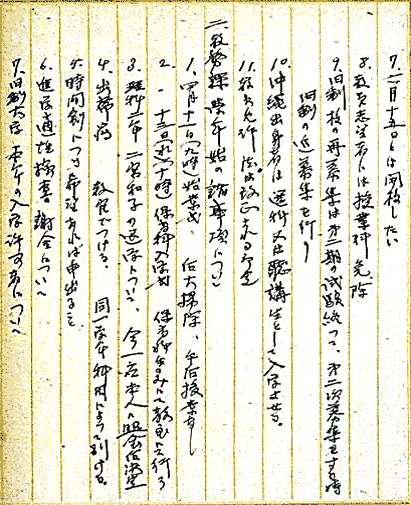 7. 二月十五日には開校したい
8. 教員志望者には授業料免除
9. 旧制校の再募集は第二期の試験終って、第二次募集をする時
旧制の追募集を行う
10. 沖縄出身者は選科又は聴講生として入学させる。
11. 教育免許法
二、教務課 学年始の諸事項について
1. 四月十一日(九時)始業式、后大掃除、午后授業なし
2. 十三日(十時)保育科入学式 保育科生のみにて教室に行う
3. 理科二年 二宮和子の退学について、今一応本人へ照会
4. 出席簿 教官でつける、同一学年 科目によって別する。
5. 時間割について希望あれば申出ること
6. 進学適性検査 謝金について
7. 旧制大学 本年の入学許可者について